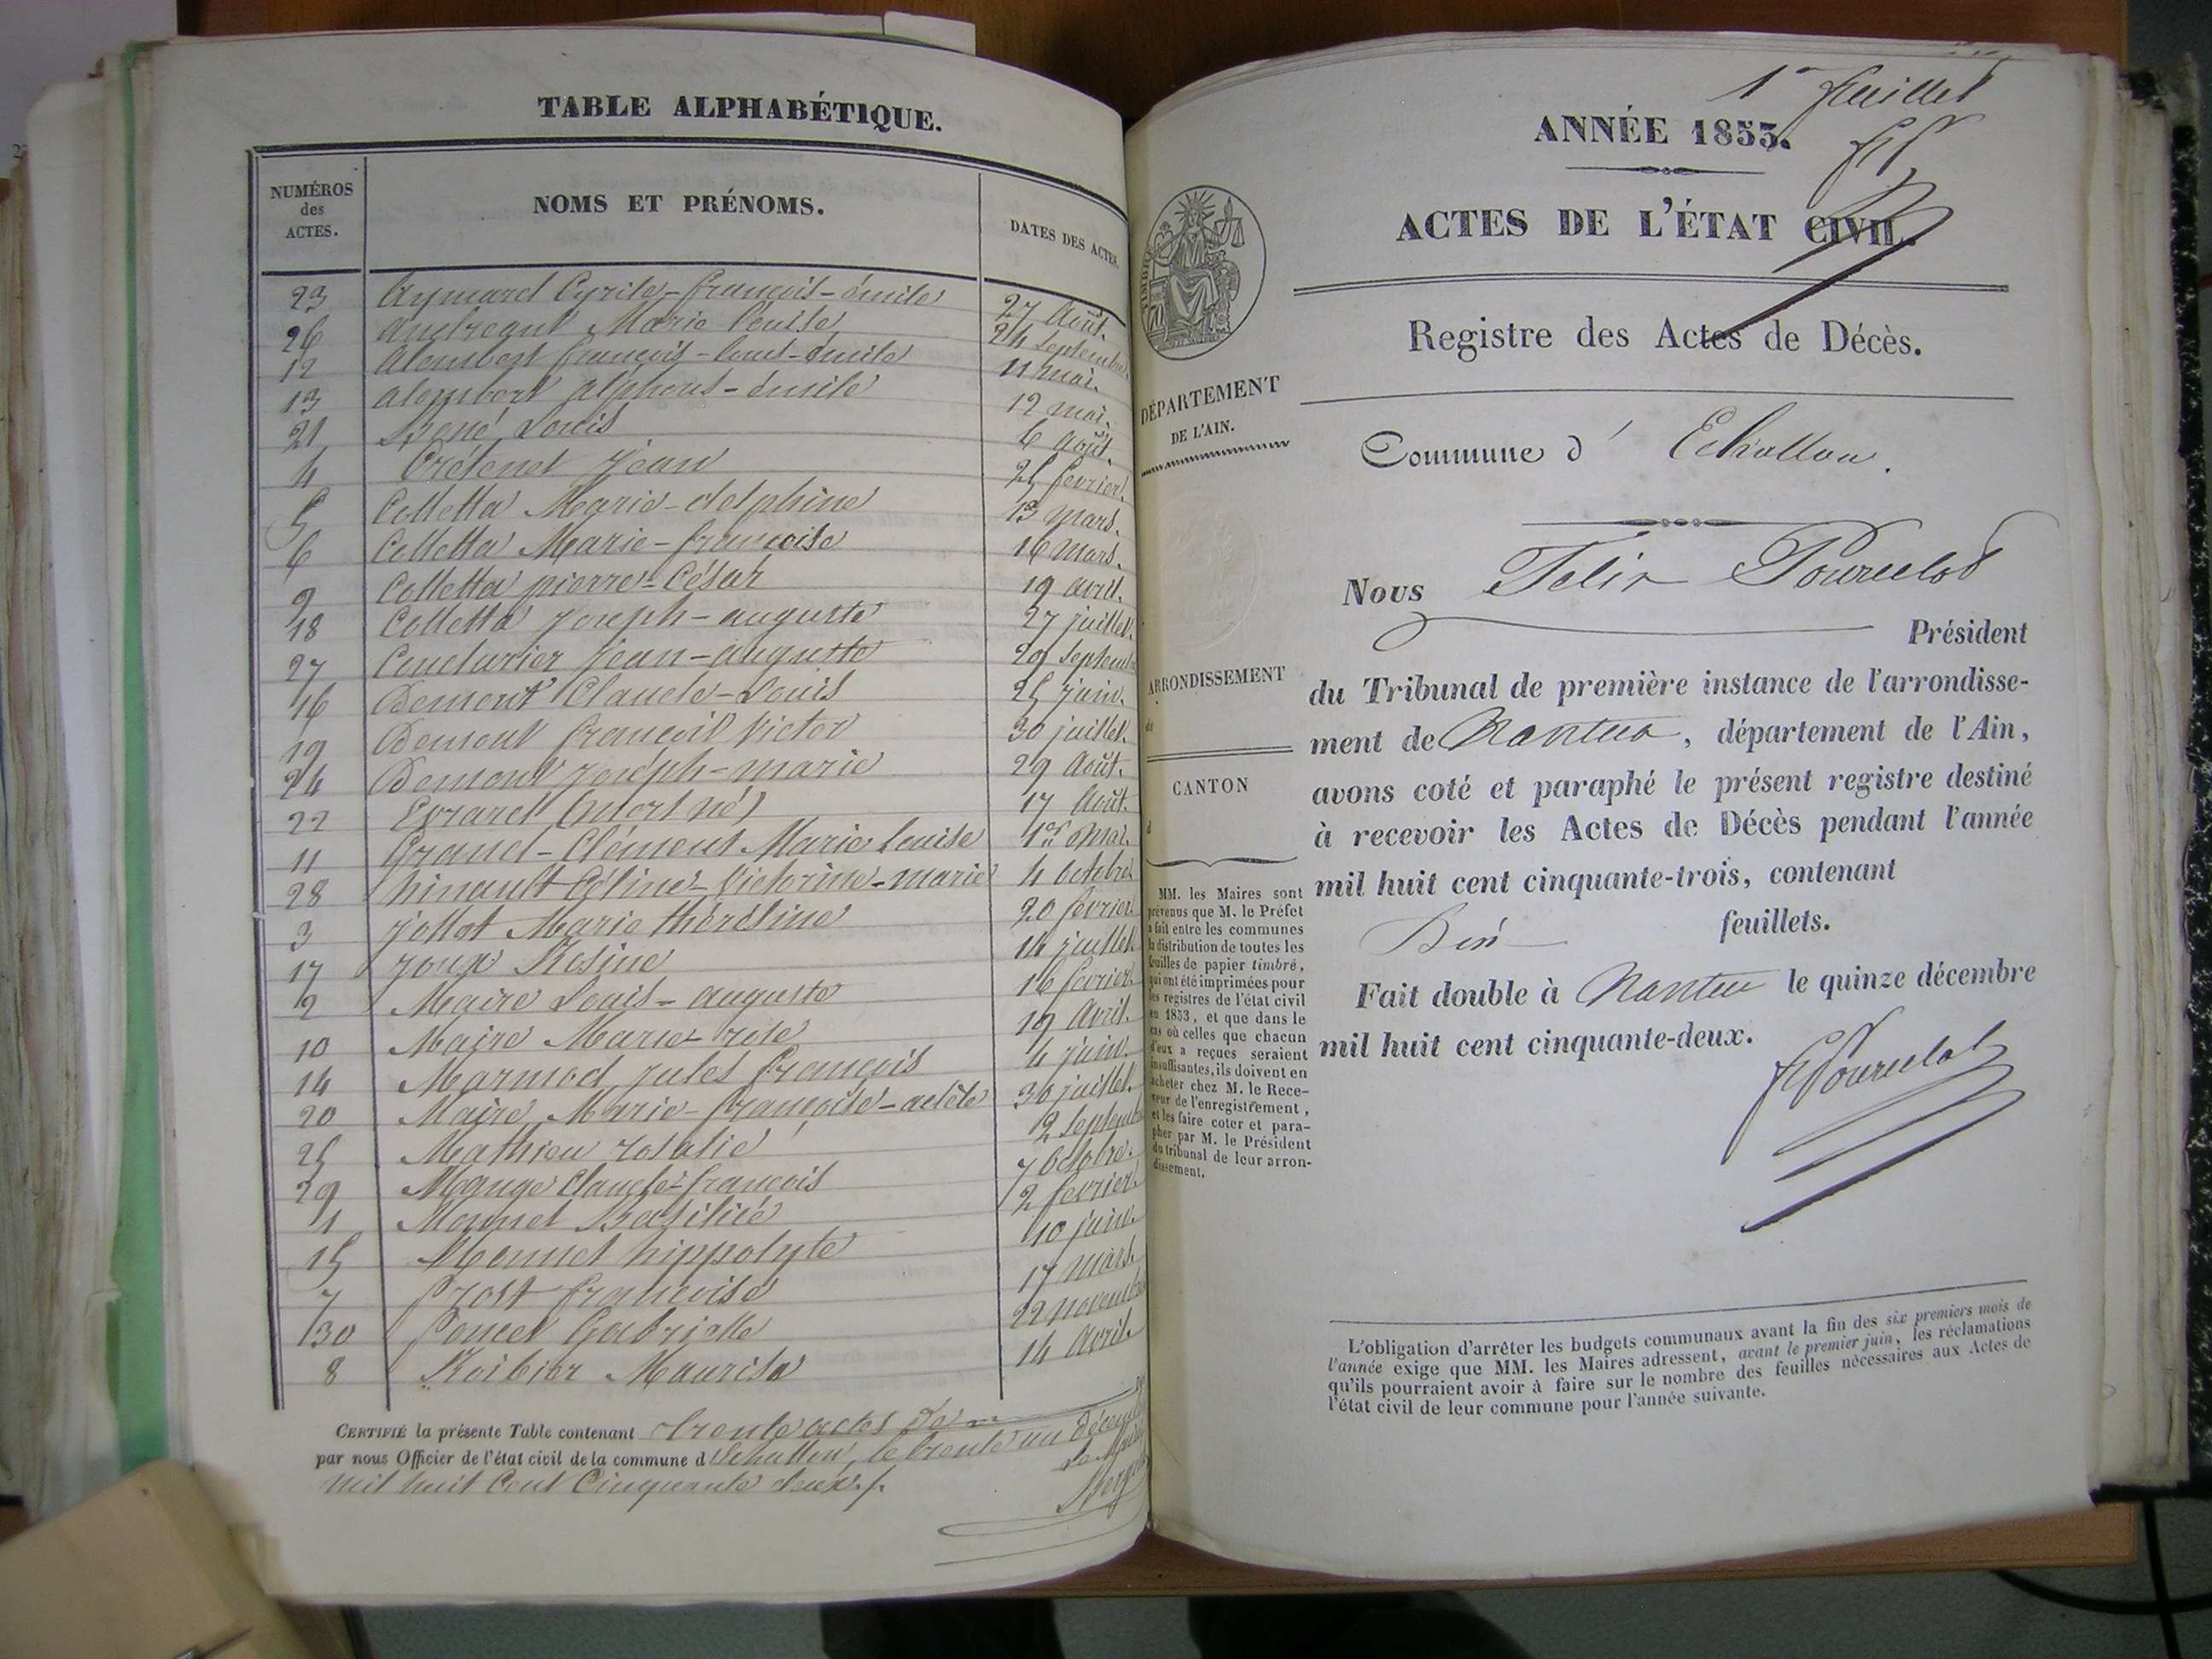 TABLE ALPHABÉTIQUE.
NUMÉROS
des
ACTES.
NOMS ET PRÉNOMS.
DATES DES ACTES.
23 Aymard Cyrile-françois-émile 27 Août.
26 Marie Louise 24 Septembre
12 Alombert françois-louis-émile 11 mai.
13 alombert alphons-émile 12 mai.
21 Bené Louis 6 Août.
4 Crétenet Jean 25 fevrier.
5 Colletta Marie-delphine 13 Mars.
6 Colletta Marie-françoise 16 Mars.
9 Colletta pierre-César 19 avril.
18 Colletta Joseph-auguste 27 juillet.
27 Coudurier Jean-auguste 29 Septemb
16 Demont Claude-Louis 25 juin.
19 Demont françois Victor 30 juillet.
24 Demont Joseph-marie 29 Août.
22 Evrard (mort né) 17 Août.
11 Grand-Clément Marie Louise 1er Mai.
28 hinault Céline-Victorine-marie 4 Octobre
3 Jollot Marie thérésine 20 fevrier.
17 Joux Rosine 14 juillet.
2 Maire Louis-auguste 16 fevrier.
10 Maire Marie-rose 19 Avril.
14 Marmod Jules françois 4 juin.
20 Maire Marie-françoise-adèle 30 juillet.
25 Mathieu rosalie 12 Septemb
29 Mange Claude-françois 7 Octobre.
1 Monnet Basilice 2 fevrier.
15 Monnet hippolyte 10 juin.
7 Prost françoise 17 Mars.
30 Poncet Gabrielle 22 novembre
8 Roibier Maurise 14 Avril.
CERTIFIÉ la présente Table contenant trente actes de
par nous Officier de l'état civil de la commune d'Echallon, le trente un décembre
mil huit Cent Cinquante deux./.
Le Maire
1er feuillet
ANNÉE 1853.
ACTES DE L'ÉTAT CIVIL.
Registre des Actes de Décès.
TIMBRE
DÉPARTEMENT
DE L'AIN.
Commune d' Echallon.
Nous Felix Pourcelot
Président
ARRONDISSEMENT
de
CANTON
d
du Tribunal de première instance de l'arrondisse-
ment de Nantua, département de l'Ain,
avons coté et paraphé le présent registre destiné
à recevoir les Actes de Décès pendant l'année
mil huit cent cinquante-trois, contenant
feuillets.
Fait double à Nantua le quinze décembre
mil huit cent cinquante-deux.
FPourcelot
MM. les Maires sont
prévenus que M. le Préfet
a fait entre les communes
la distribution de toutes les
feuilles de papier timbré,
qui ont été imprimées pour
les registres de l'état civil
en 1853, et que dans le
cas où celles que chacun
d'eux a reçues seraient
insuffisantes, ils doivent en
acheter chez M. le Rece-
veur de l'enregistrement,
et les faire coter et para-
pher par M. le Président
du tribunal de leur arron-
dissement.
L'obligation d'arrêter les budgets communaux avant la fin des six premiers mois de
l'année exige que MM. les Maires adressent, avant le premier juin, les réclamations
qu'ils pourraient avoir à faire sur le nombre des feuilles nécessaires aux Actes de
l'état civil de leur commune pour l'année suivante.